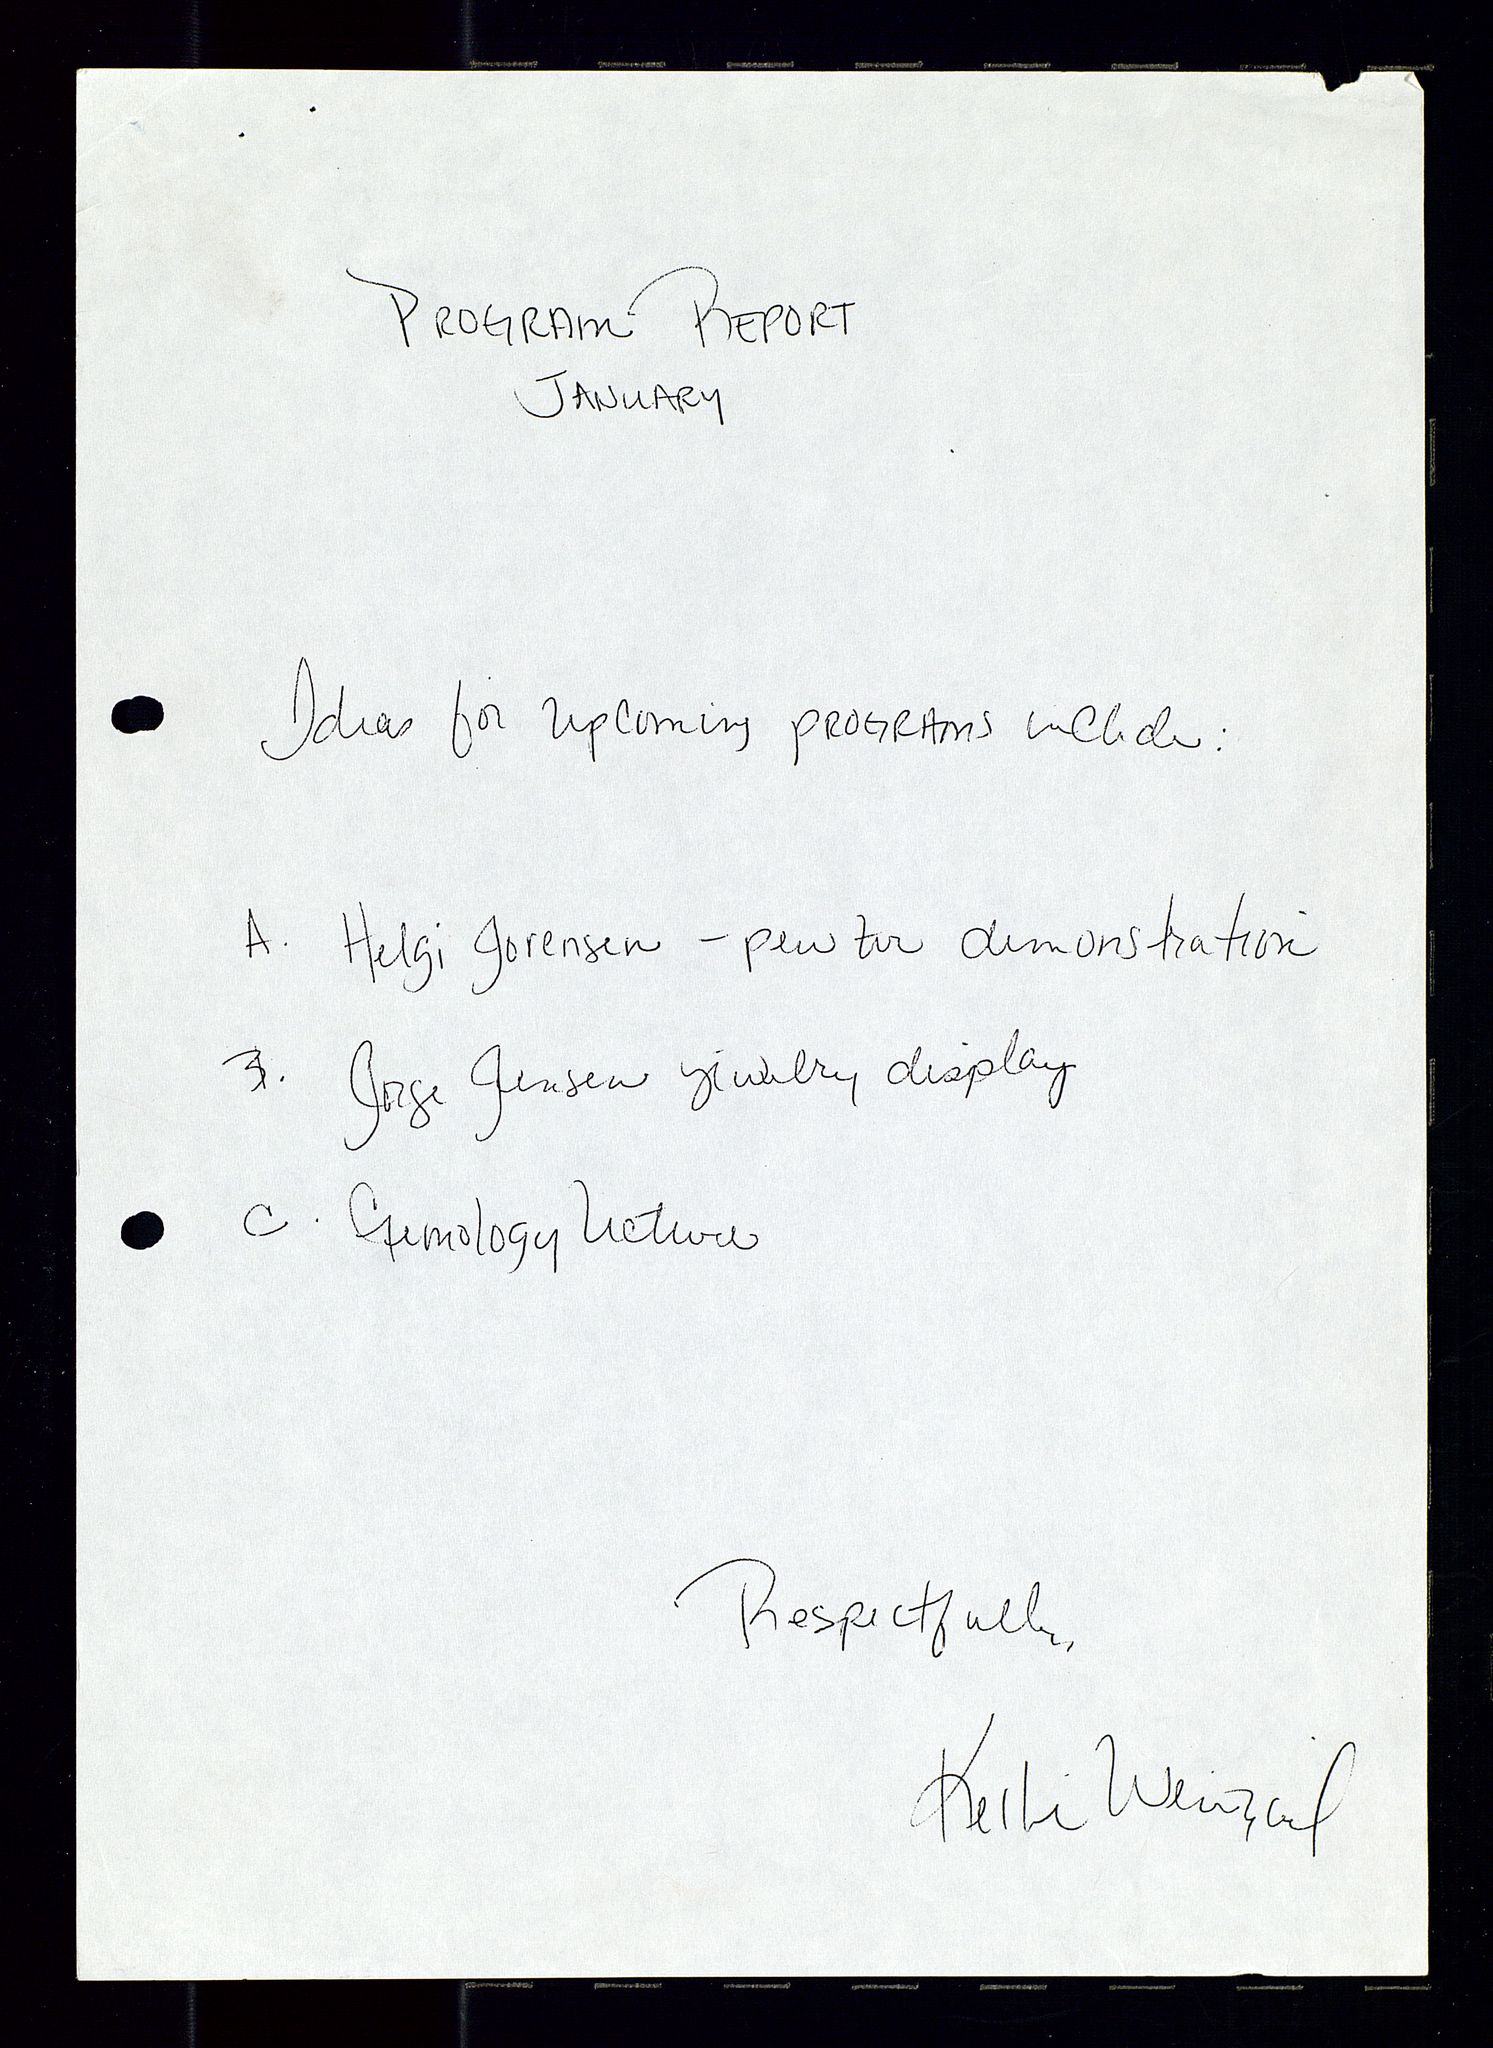 PROGRAM REPORT
JANUARY
Ideas for upcoming PROGRAMS include:
A. Helgi Jorensen - pewter demonstration
B. Jorge Jensen jewelry display
C. Gemology lecture
Respectfully,